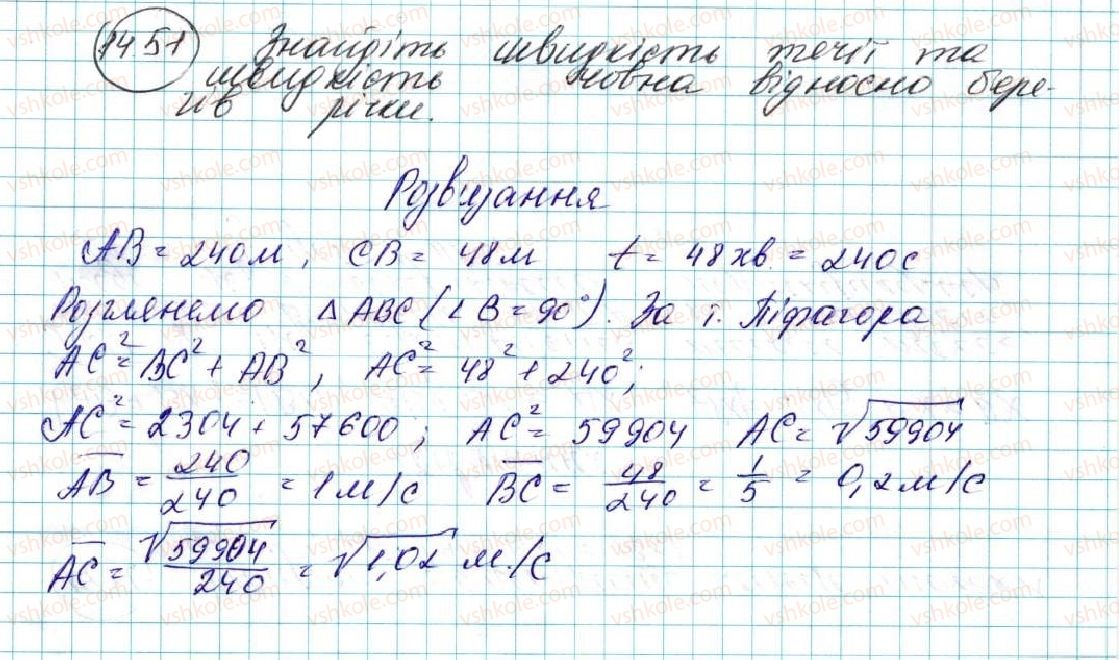 1451 Знайдіть швидкість течії та
швидкість човна відносно бере-
гів річки.
Розв'язання
AB = 240 м, CB = 48 м t = 48 хв. = 240 с
Розглянемо △ABC (∠B = 90°). За т. Піфагора
AC² = BC² + AB², AC² = 48² + 240²;
AC² = 2304 + 57600; AC² = 59904 AC = √59904
AB = 240/240 = 1 м/с BC = 48/240 = 1/5 = 0,2 м/с
AC = √59904/240 = √1,02 м/с